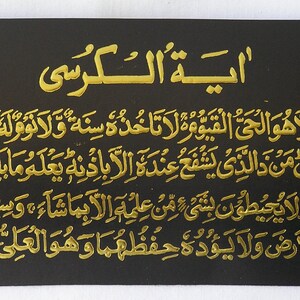 اية الكرسى
هو الحي القيوم لا تاخذه سنة ولا نوم له
من ذالذي يشفع عنده الا باذنه يعلم ما
لا يحيطون بشيء من علمه الا بما شاء وس
رض ولا يؤده حفظهما وهو العلى